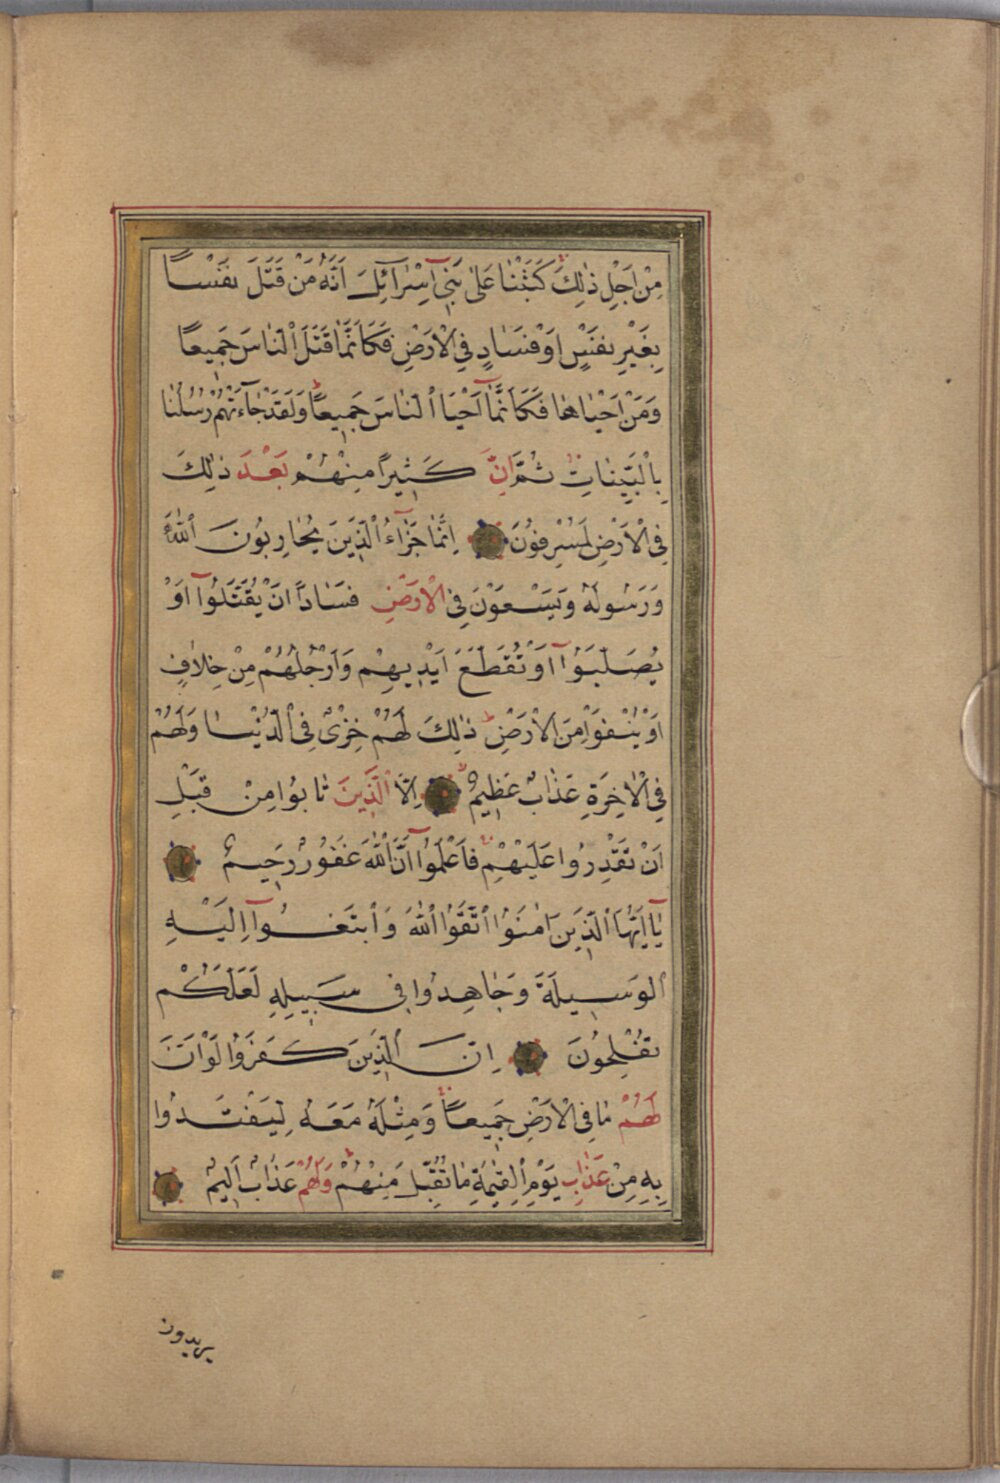 مِنْ اَجْلِ ذٰلِكَ كَتَبْنَا عَلٰى بَنٖٓى اِسْرَٓائِلَ اَنَّهُ مَنْ قَتَلَ نَفْسًا
بِغَيْرِ نَفْسٍ اَوْ فَسَادٍ فِى الْاَرْضِ فَكَاَنَّمَا قَتَلَ النَّاسَ جَمٖيعًا
وَمَنْ اَحْيَاهَا فَكَاَنَّمَٓا اَحْيَا النَّاسَ جَمٖيعًا وَلَقَدْ جَٓاءَتْهُمْ رُسُلُنَا
بِالْبَيِّنَاتِ ثُمَّ اِنَّ كَثٖيرًا مِنْهُمْ بَعْدَ ذٰلِكَ
فِى الْاَرْضِ لَمُسْرِفُونَ اِنَّمَا جَزَٓاءُ الَّذٖينَ يُحَارِبُونَ اللّٰهَ
وَرَسُولَهُ وَيَسْعَوْنَ فِى الْاَرْضِ فَسَادًا اَنْ يُقَتَّلُٓوا اَوْ
يُصَلَّبُٓوا اَوْ تُقَطَّعَ اَيْدٖيهِمْ وَاَرْجُلُهُمْ مِنْ خِلَافٍ
اَوْ يُنْفَوْا مِنَ الْاَرْضِ ذٰلِكَ لَهُمْ خِزْىٌ فِى الدُّنْيَا وَلَهُمْ
فِى الْاٰخِرَةِ عَذَابٌ عَظٖيمٌ اِلَّا الَّذٖينَ تَابُوا مِنْ قَبْلِ
اَنْ تَقْدِرُوا عَلَيْهِمْ فَاعْلَمُٓوا اَنَّ اللّٰهَ غَفُورٌ رَحٖيمٌ
يَٓا اَيُّهَا الَّذٖينَ اٰمَنُوا اتَّقُوا اللّٰهَ وَابْتَغُٓوا اِلَيْهِ
الْوَسٖيلَةَ وَجَاهِدُوا فٖى سَبٖيلِهٖ لَعَلَّكُمْ
تُفْلِحُونَ اِنَّ الَّذٖينَ كَفَرُوا لَوْ اَنَّ
لَهُمْ مَا فِى الْاَرْضِ جَمٖيعًا وَمِثْلَهُ مَعَهُ لِيَفْتَدُوا
بِهٖ مِنْ عَذَابِ يَوْمِ الْقِيٰمَةِ مَا تُقُبِّلَ مِنْهُمْ وَلَهُمْ عَذَابٌ اَلٖيمٌ
يريدون